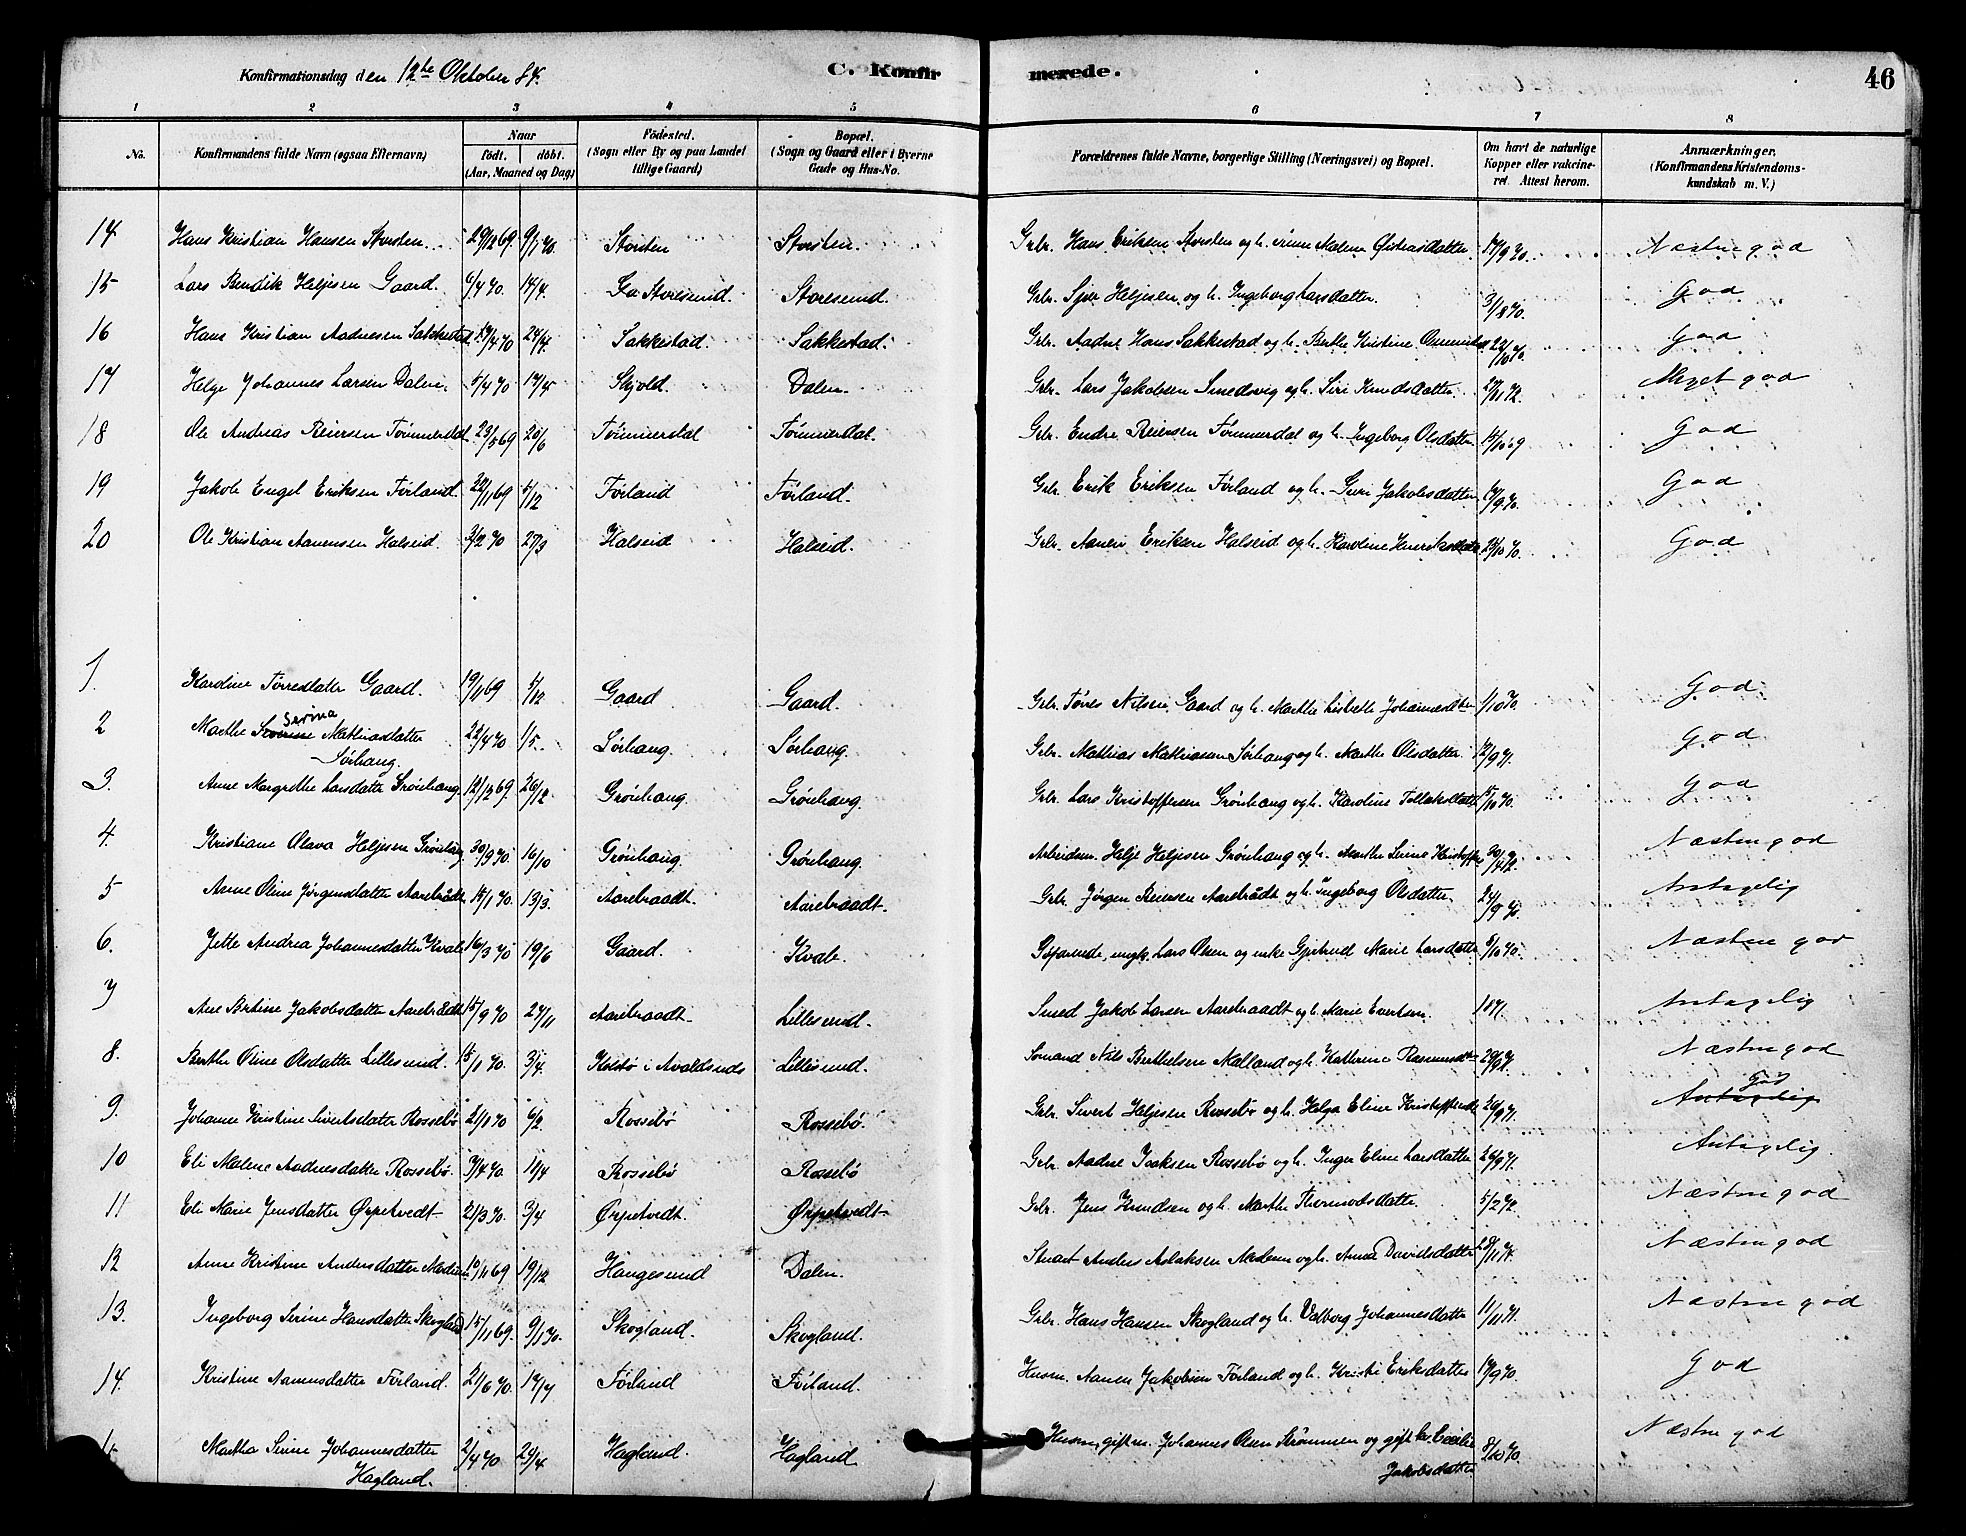 Konfirmationsdag den 12te Oktober 84. C. Konfirmerede. 46
1 2 3 4 5 6 7 8
No. Konfirmandens fulde Navn (ogsaa Efternavn) Naar født. døbt. (Aar, Maaned og Dag) Fødested. (Sogn eller By og paa Landet tillige Gaard) Bopæl. (Sogn og Gaard eller i Byerne Gade og Hus-No. Forældrenes fulde Navne, borgerlige Stilling (Næringsvei) og Bopæl. Om havt de naturlige Kopper eller vakcineret. Attest herom. Anmærkninger. (Konfirmandens Kristendomskundskab m. V.)
14 Hans Kristian Hansen Storsten 29/12 69. 9/1 70. Storsten Storsten. Grbr. Hans Eriksen Storsten og h. Malene 17/9 70. Næsten god
15 Lars Bendik Heljesen Gaard. 6/4 70. 14/4. Storesund. Storesund. Grbr. Sjur Heljesen og h. Ingeborg Larsdatter. 3/8 70. God
16 Hans Kristian Aadnesen Sakkestad 19/4 70 24/4. Sakkestad. Sakkestad. Grbr. Aadne Hans Sakkestad og h. Berthe Kristine God
17 Helge Johannes Larsen Dalen. 5/4 70 Skjold. Dalen. Grbr. Lars Jakobsen Smedsvig og h. Siri Knudsdatter. Meget god
18 Ole Andreas Reiersen Tømmerdal. 23/5 69 20/6 Tømmerdal Tømmerdal. Grbr. Endre Reiersen Tømmerdal og h. Ingeborg Olsdatter. 14/10 69 God
19 Jakob Engel Eriksen Førland. 20/11 69 5/12 Førland Førland. Grbr. Erik Eriksen Førland og h. Siri Jakobsdatter God
20 Ole Kristian Aanensen Halseid. 2/2 70 27/3 Halseid Halseid. Grbr. Aanen Eriksen Halseid og h. Karoline Henriksdatter God
1. Karoline Tørresdatter Gaard. 19/11 69 5/12 Gaard Gaard. Grbr. Tørres Nilsen Gaard og h. Marthe Lisbeth Johannesdtr 1/10 70. God
2 Marthe Serina Mathiasdatter Sørhaug. 22/4 70 1/5. Sørhaug. Sørhaug. Grbr. Mathias Mathiasen Sørhaug og h. Marthe Olsdatter. 12/9 71. God
3. Anne Margrethe Larsdatter Grønhaug 12/12 69. 26/12 Grønhaug. Grønhaug. Grbr. Lars Kristoffersen Grønhaug og h. Karoline Tollaksdatter God
4. Kristiane Olava Heljesen Grønhaug 30/9 70. 16/10 Grønhaug. Grønhaug. Arbeidsm. Helje Heljesen Grønhaug og h. Marthe Serine Næsten god
5 Anne Oline Jørgensdatter Aarebrådt 13/3. Aarebraadt. Aarebraadt. Grbr. Jørgen Reiersen Aarebrådt og h. Ingeborg Olsdatter. Antagelig
6. Jette Andrea Johannesdatter Kvale 16/3 70 19/6 Gaard. Kvale. ungk. Lars Olsen og enke Gjertrud Marie Larsdatter Næsten god
7 Ane Bertine Jakobsdatter Aarebrådt 15/9 70 27/11 Aarebraadt Lillesund. Smed Jakob Larsen Aarebraadt og h. Marie Evertsen. Antagelig
8. Berthe Oline Olsdatter Lillesund. 15/1 70. 3/4. Kolstø i Avaldsnes Lillesund. Sømand Nils Berthelsen Mælland og h. Kathrine Rasmusdtr Næsten god
9. Johanne Kristine Sivertsdatter Rossebø 2/1 70 6/2 Rossebø Rossebø. Grbr. Sivert Heljesen Rossebø og h. Helga Eline 26/9 71. Antagelig God
10 Eli Malene Aadnesdatter Rossebø. 11/4 Rossebø Rossebø Grbr. Aadne Isaksen Rossebø og h. Inger Eline Larsdatter 26/9 71. Antagelig.
11 Eli Marie Jensdatter Ørpetvedt 21/3 70. 3/4 Ørpetvedt. Ørpetvedt Grbr. Jens Knudsen og h. Marthe Thormodsdatter. 5/2 72. Næsten god
12 Anne Kristine Andersdatter 10/11 69 19/12 Haugesund Dalen. Stuart Anders Aslaksen og h. Anna Davidsdatter Næsten god
13. Ingeborg Serine Hansdatter Skogland 15/11 69 9/1 70. Skogland. Skogland. Grbr. Hans Hansen Skogland og h. Valborg Johannesdatter 11/11 71. Næsten god
14. Kristine Aanensdatter Førland. 2/6 70. 17/7 Førland Førland. Husm. Aanen Jakobsen Førland og h. Kristi Eriksdatter God
15 Martha Serine Johannesdatter Hagland. 2/4 70 24/4 Hagland. Hagland Husm, gift m. Johannes Olsen Strømmen og gift kv. Cecilie Jakobsdatter Næsten god